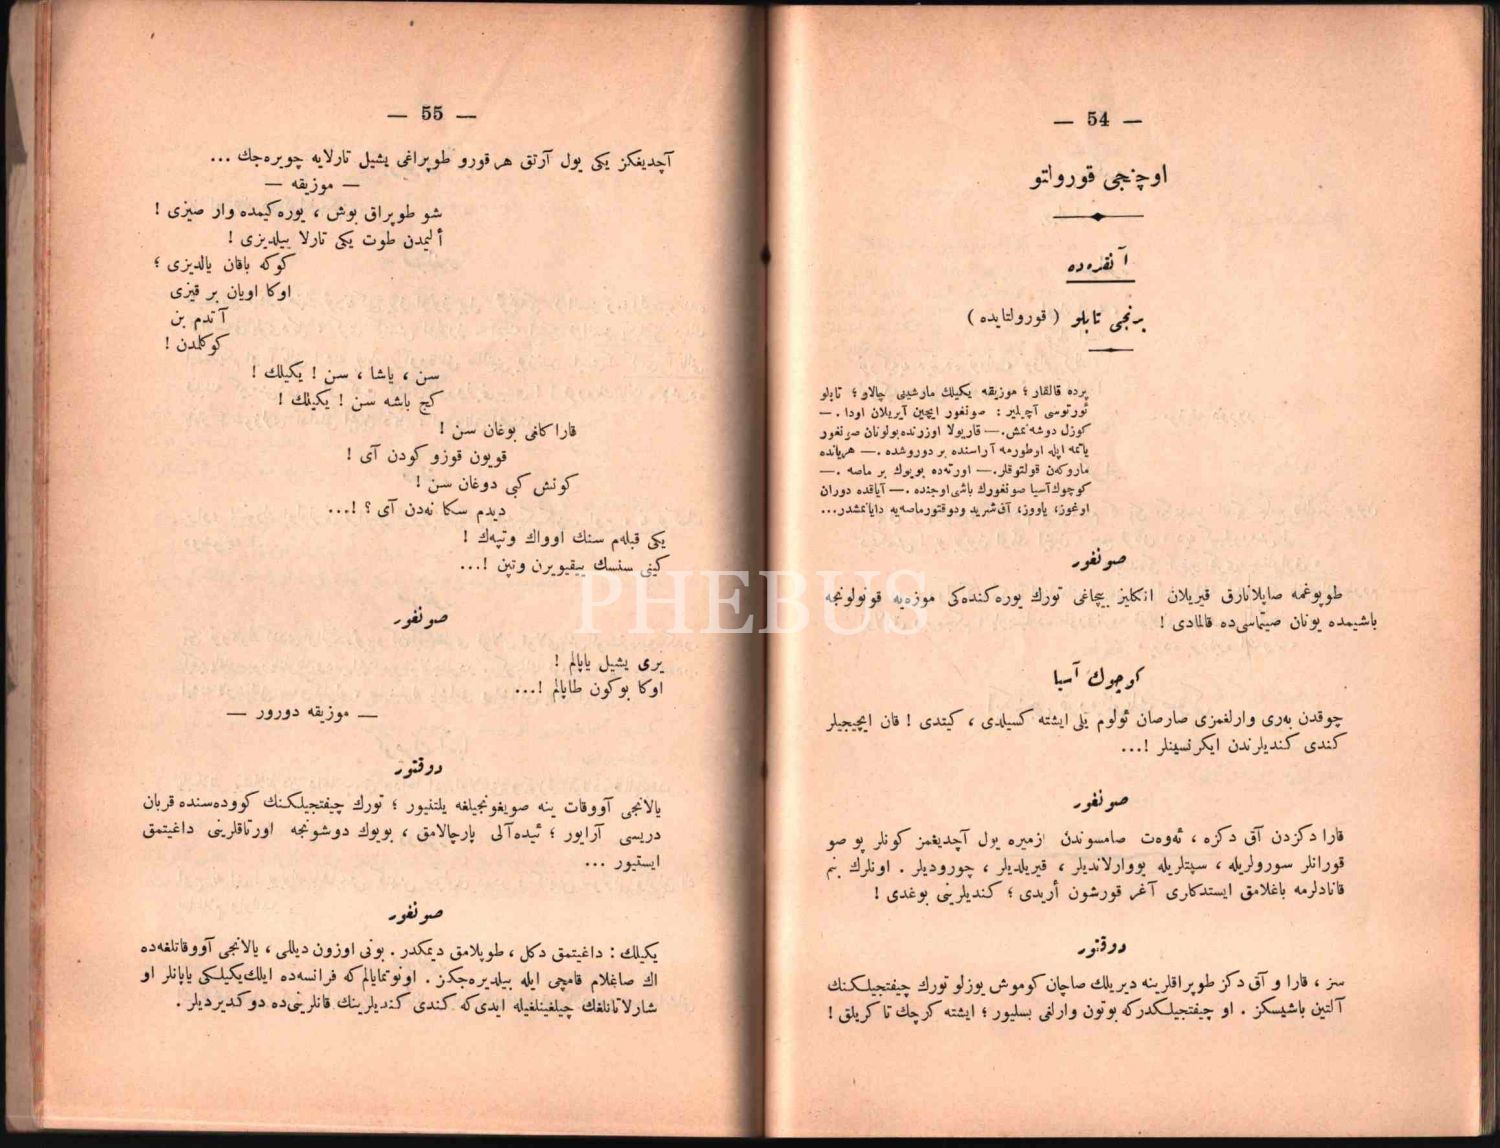 — 54 —
اوچنجی قورولتو
آنقره‌ده
برنجی تابلو ( قورولتایده )
پرده قالقار ؛ موزیقه یکیلك مارشینی چالار ؛ تابلو
ئورتوسی آچیلیر : صونغور ایچین آیریلان اودا . —
کوزل دوشه‌نمش. — قاریولا اوزرنده‌بولونان صونغور
یاتمه ایله اوطورمه آراسنده بر دوروشده . — هریانده
ماروکن قولتوقلر. — اورته‌ده بویوك بر ماصه . —
کوچوك‌آسیا صونغورك باشی اوجنده . — آیاقده دوران
اوغوز، یاووز، آق‌شرید ودوقتورماصه‌یه دایانمشدر...
صونغور
طوپوغمه صاپلانارق قیریلان انکلیز بیچاغی تورك یوره‌کنده‌کی موزه‌یه قونولونجه
باشیمده یونان صیتماسی‌ده قالمادی !
کوچوك آسیا
چوقدن به‌ری وارلغمزی صارصان ئولوم یلی ایشته کسیلدی ، کیتدی ! قان ایچیجیلر
کندی کندیلرندن ایکرنسینلر !...
صونغور
قارا دکزدن آق دکزه ، ئه‌وه‌ت صامسوندن ازمیره یول آچدیغمز کونلر پو صو
قورانلر سورولریله ، سپتلریله یووارلاندیلر ، قیریلدیلر ، چورودیلر . اونلرك بنم
قانادلرمه باغلامق ایستدکاری آغر قورشون أریدی ؛ کندیلرینی بوغدی !
دوقتور
سز ، قارا و آق دکز طوپراقلرینه دیریلك صاچان کوموش یوزلو تورك چیفتجیلکنك
آلتین باشیسکز . او چیفتجیلکدرکه بوتون وارلغی بسلیور ؛ ایشته کرچك تا کریلق !
— 55 —
آچدیغکز یکی یول آرتق هر قورو طوپراغی یشیل تارلایه چویره‌جك ...
— موزیقه —
شو طوپراق بوش ، یوره‌کیمده وار صیزی !
ألیمدن طوت یکی تارلا ییلدیزی !
کوکه باقان یالدیزی ؛
اوکا اویان بر قیزی
آتدم بن
کوکلمدن !
سن ، یاشا ، سن ! یکیلك !
کچ باشه سن ! یکیلك !
قاراکافی بوغان سن !
قویون قوزو کودن آی !
کونش کبی دوغان سن !
دیدم سکا نه‌دن آی ؟ !...
یکی قبله‌م سنك اوواك وتپه‌ك !
کینی سنسك ییقیویرن وتپن !...
صونغور
یری یشیل یاپالم !
اوکا بوکون طاپالم !...
— موزیقه دورور —
دوقتور
یالانجی آووقات ینه صویغونجیلغه یلتنیور ؛ تورك چیفتجیلکنك کووده‌سنده قربان
دریسی آرایور ؛ ئیده‌آلی پارچالامق ، بویوك دوشونجه اورتاقلرینی داغیتمق
ایستیور ...
صونغور
یکیلك : داغیتمق دکل ، طوپلامق دیمکدر . بونی اوزون دیللی ، یالانجی آووقاتلغه‌ده
اك صاغلام قامچی ایله بیلدیره‌جکز . اونوتمایالم که فرانسه‌ده ایلك‌یکیلکی یاپانلر او
شارلاتانلغك چیلغینلغیله ایدی‌که کندی کندیلرینك قانلرینی‌ده دوکدیردیلر .
PHEBUS